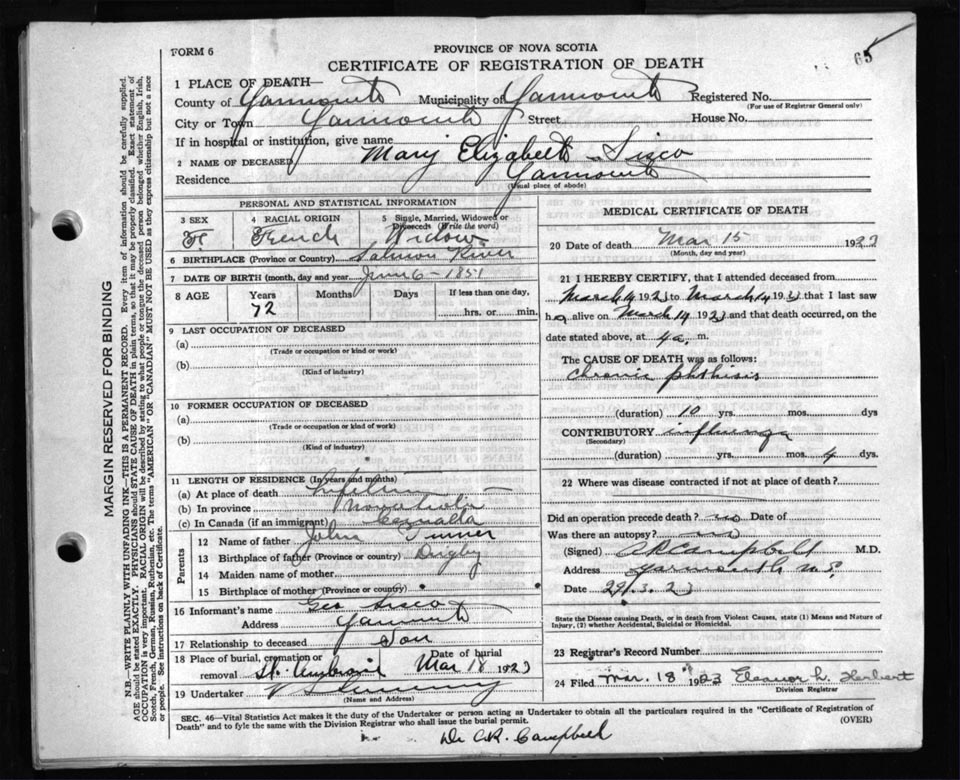 65
FORM 6
PROVINCE OF NOVA SCOTIA
CERTIFICATE OF REGISTRATION OF DEATH
1 PLACE OF DEATH—
County of Yarmouth Municipality of Yarmouth Registered No.
(For use of Registrar General only)
City or Town Yarmouth Street House No.
If in hospital or institution, give name
2 NAME OF DECEASED Mary Elizabeth Sisco
Residence Yarmouth
(Usual place of abode)
PERSONAL AND STATISTICAL INFORMATION
3 SEX 4 RACIAL ORIGIN 5 Single, Married, Widowed or Divorced (Write the word)
F French Widow
6 BIRTHPLACE (Province or Country) Salmon River
7 DATE OF BIRTH (month, day and year) June 6 - 1851
8 AGE Years Months Days If less than one day,
72 hrs. or min.
9 LAST OCCUPATION OF DECEASED
(a)
(Trade or occupation or kind or work)
(b)
(Kind of industry)
10 FORMER OCCUPATION OF DECEASED
(a)
(Trade or occupation or kind of work)
(b)
(Kind of industry)
11 LENGTH OF RESIDENCE (In years and months)
(a) At place of death Lifetime
(b) In province Nova Scotia
(c) In Canada (if an immigrant) Canada
Parents
12 Name of father John Turner
13 Birthplace of father (Province or country) Digby
14 Maiden name of mother
15 Birthplace of mother (Province or country)
16 Informant's name Geo Sisco
Address Yarmouth
17 Relationship to deceased Son
18 Place of burial, cremation or removal St. Ambrose Date of burial Mar 18 1923
19 Undertaker
(Name and Address)
MEDICAL CERTIFICATE OF DEATH
20 Date of death Mar 15 1923
(Month, day and year)
21 I HEREBY CERTIFY, that I attended deceased from
March 14 1923 to March 14 1923 that I last saw
her alive on March 14 1923 and that death occurred, on the
date stated above, at 4 a. m.
The CAUSE OF DEATH was as follows:
Chronic phthisis
(duration) 10 yrs. mos. dys
CONTRIBUTORY influenza
(Secondary)
(duration) yrs. mos. 4 dys.
22 Where was disease contracted if not at place of death?
Did an operation precede death? no Date of
Was there an autopsy? no
(Signed) AR Campbell M.D.
Address Yarmouth N.S.
Date 29.3.23
State the Disease causing Death, or in death from Violent Causes, state (1) Means and Nature of
Injury, (2) whether Accidental, Suicidal or Homicidal.
23 Registrar's Record Number
24 Filed Mar. 18 1923 Eleanor L. Herbert
Division Registrar
SEC. 46—Vital Statistics Act makes it the duty of the Undertaker or person acting as Undertaker to obtain all the particulars required in the "Certificate of Registration of
Death" and to fyle the same with the Division Registrar who shall issue the burial permit. (OVER)
Dr AR. Campbell
MARGIN RESERVED FOR BINDING
N.B.—WRITE PLAINLY WITH UNFADING INK—THIS IS A PERMANENT RECORD. Every item of information should be carefully supplied.
AGE should be stated EXACTLY. PHYSICIANS should STATE CAUSE OF DEATH in plain terms, so that it may be properly classified. Exact statement of
OCCUPATION is very important. RACIAL ORIGIN will be described by stating to what people or tongue the deceased person belonged whether English, Irish,
Scotch, French, German, Russian, Ruthenian, etc. The terms "AMERICAN" or "CANADIAN" MUST NOT BE USED as they express citizenship but not a race
or people. See instructions on back of Certificate.